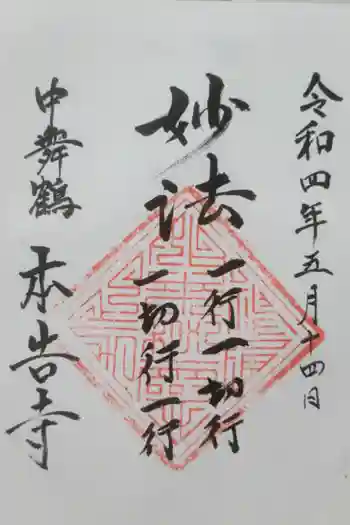 令和四年五月十四日
妙
法
一行一切行
一切行一行
中舞鶴
本告寺